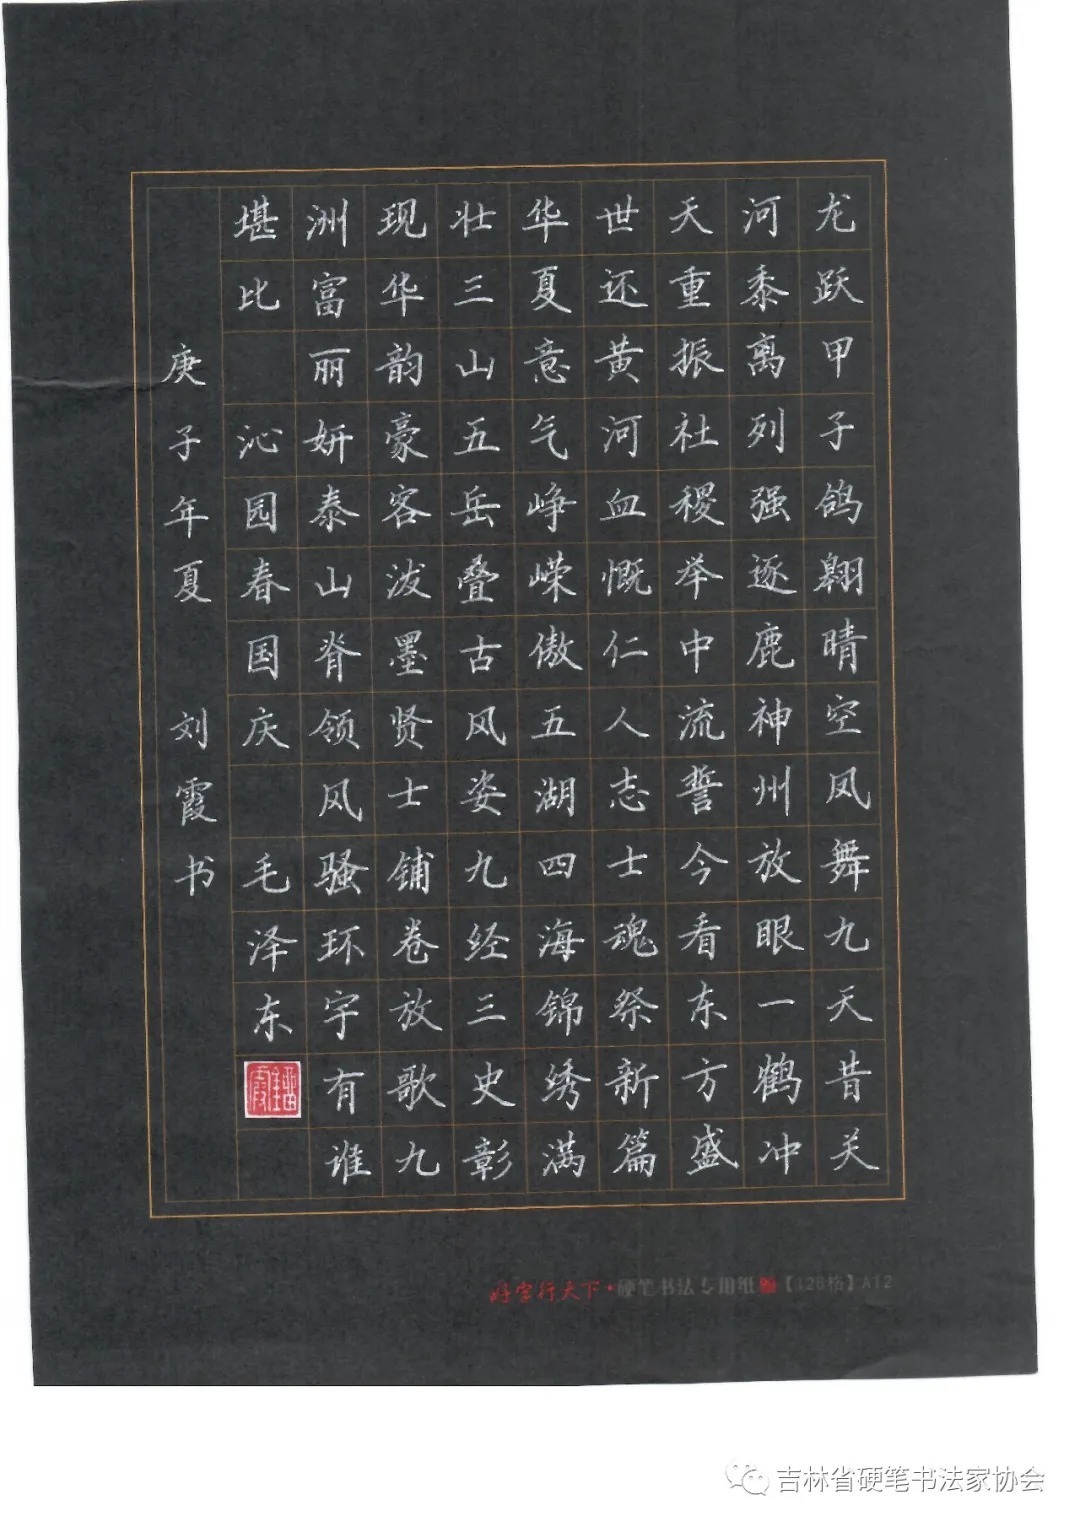 龙跃甲子鸽翱晴空凤舞九天昔关
河黍离列强逐鹿神州放眼一鹤冲
天重振社稷举中流誓今看东方盛
世还黄河血慨仁人志士魂祭新篇
华夏意气峥嵘傲五湖四海锦绣满
壮三山五岳叠古风姿九经三史彰
现华韵豪客泼墨贤士铺卷放歌九
洲富丽妍泰山脊领风骚环宇有谁
堪比 沁园春国庆 毛泽东
庚子年夏 刘霞书
好字行天下·硬笔书法专用纸【126格】A12
吉林省硬笔书法家协会